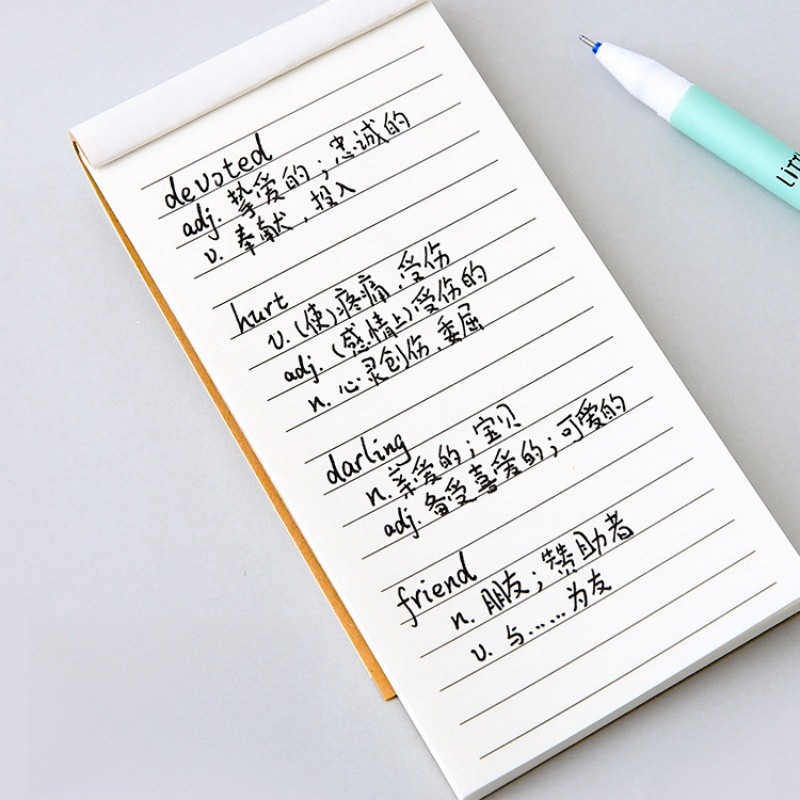 devoted
adj. 挚爱的；忠诚的
v. 奉献，投入
hurt
v. (使)疼痛，受伤
adj. (感情上)受伤的
n. 心灵创伤，委屈
darling
n. 亲爱的；宝贝
adj. 备受喜爱的；可爱的
friend
n. 朋友；赞助者
v. 与……为友